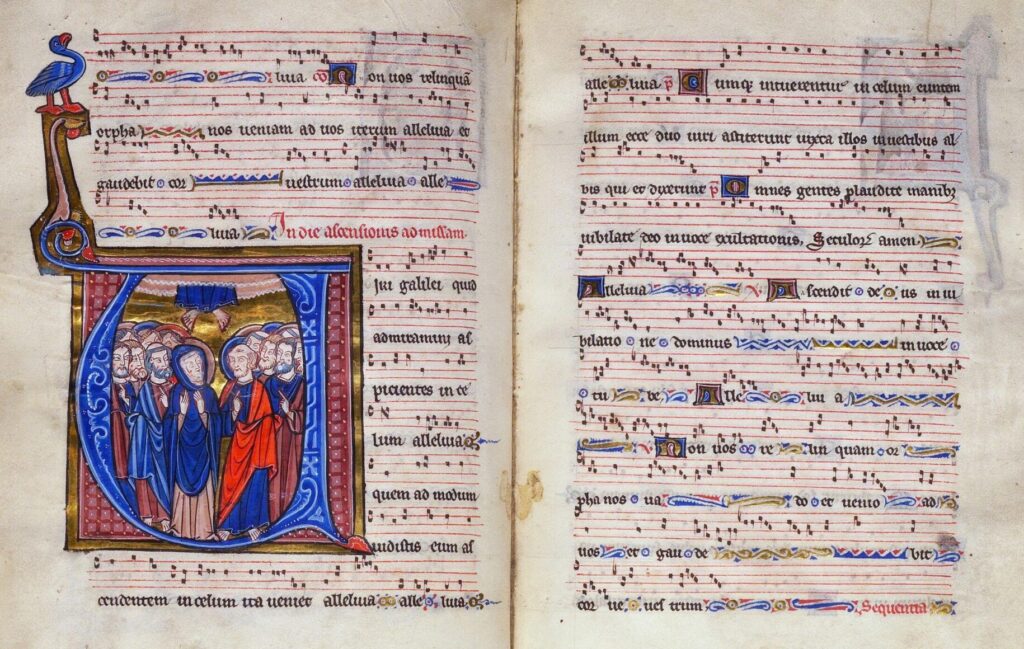 luia co Non uos relinquā
orpha nos ueniam ad uos iterum alleluia et
gaudebit cor uestrum alleluia alle
luia In die ascensionis ad missam.
iri galilei quid
admiramini as
picientes in ce
lum alleluia
quem ad modum
uidistis eum as
cendentem in celum ita ueniet alleluia alle luia
alle luia p̄ Cumq; intuerentur in celum euntem
illum ecce duo uiri astiterunt iuxta illos in uestibus al
bis qui et dixerunt p̄ Omnes gentes plaudite manibꝫ
iubilate deo in uoce exultationis, Seculorꝫ amen
Alleluia V Ascendit de us in iu
bilatio ne dominus in uoce
tu be Alle lui a
V Non uos re lin quam or
pha nos ua do et uenio ad
uos et gau de bit
cor ue ues trum Sequentia